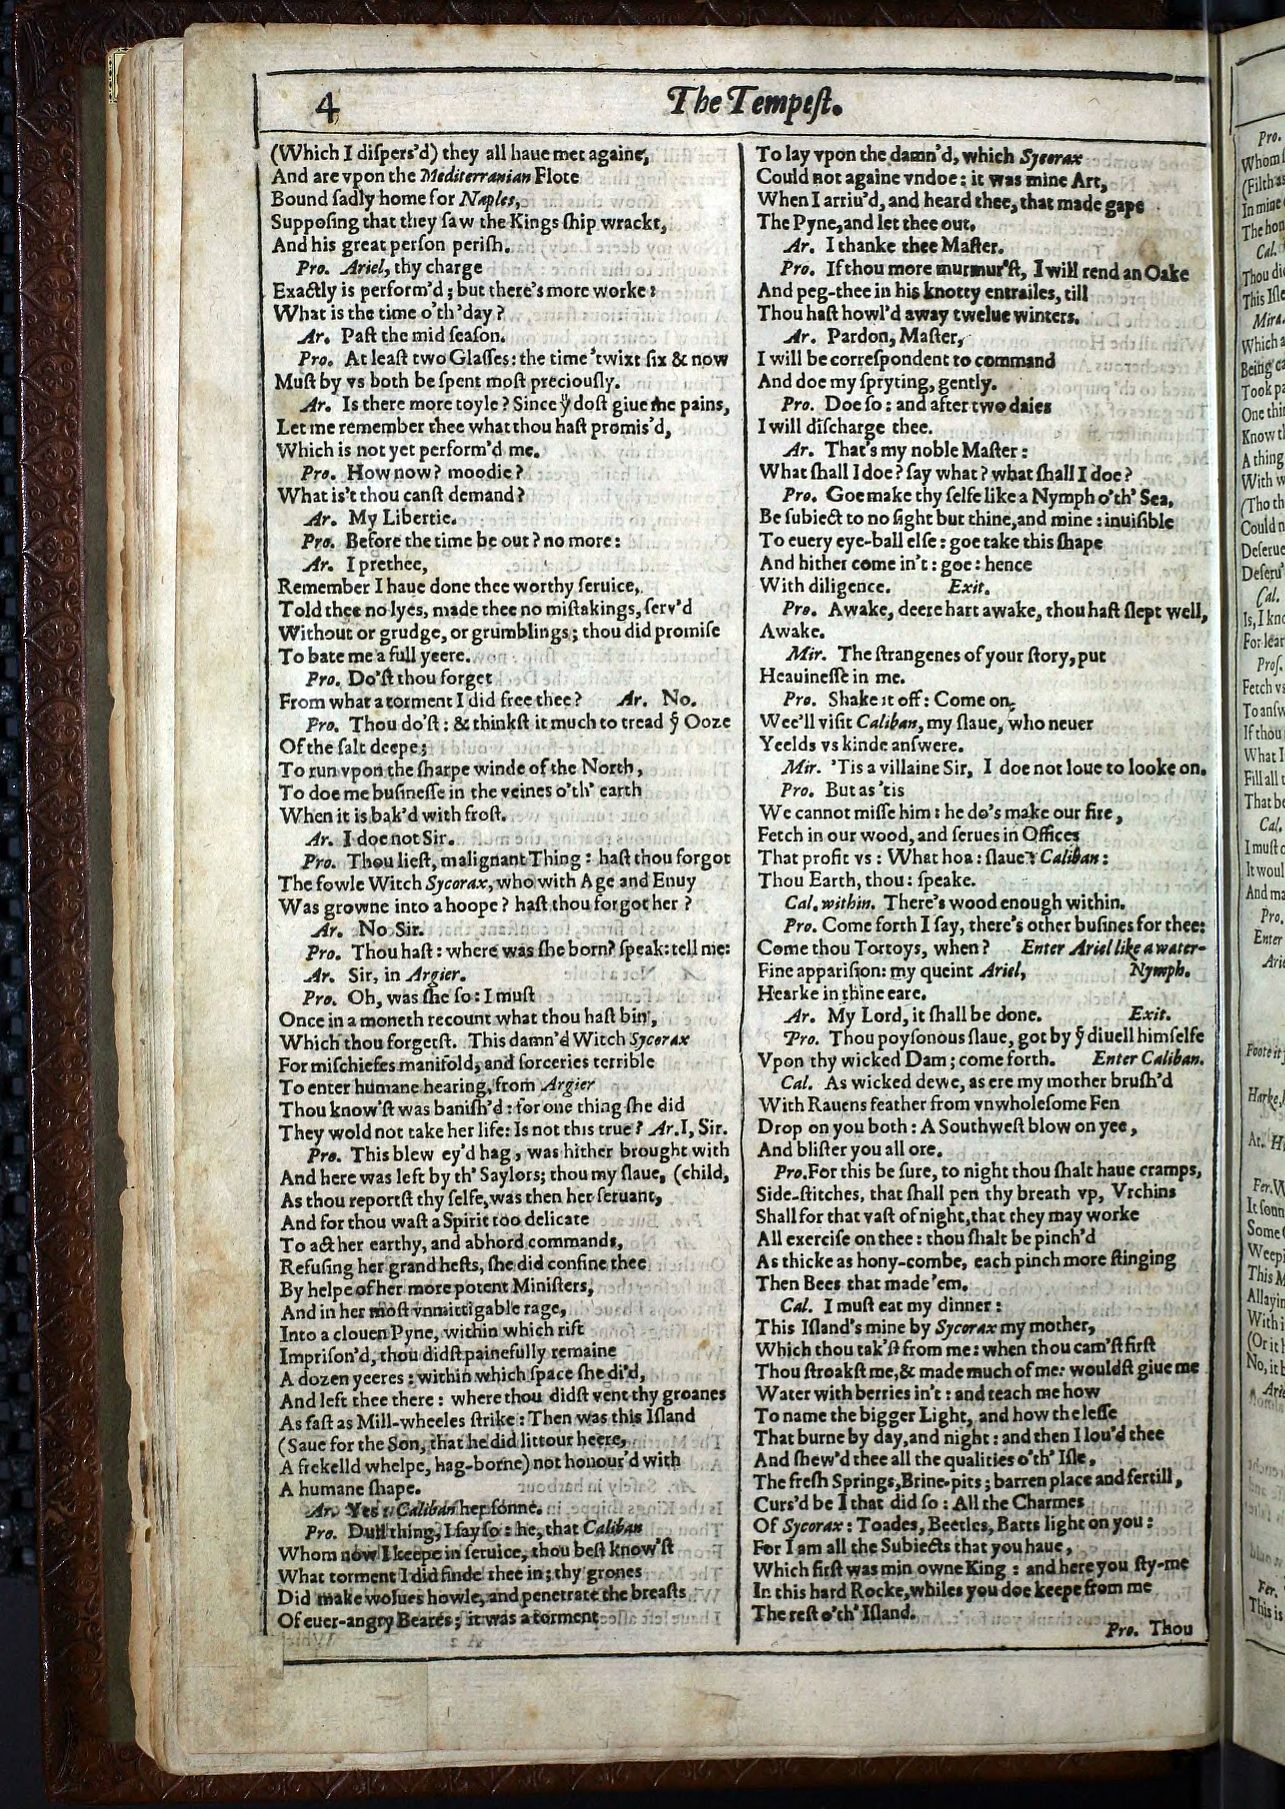 4
The Tempeſt.
(Which I diſpers'd) they all haue met againe,
And are vpon the Mediterranian Flote
Bound ſadly home for Naples,
Suppoſing that they ſaw the Kings ſhip wrackt,
And his great perſon periſh.
Pro. Ariel, thy charge
Exactly is perform'd; but there's more worke:
What is the time o'th'day?
Ar. Paſt the mid ſeaſon.
Pro. At leaſt two Glaſſes: the time 'twixt ſix & now
Muſt by vs both be ſpent moſt preciouſly.
Ar. Is there more toyle? Since yͧ doſt giue me pains,
Let me remember thee what thou haſt promis'd,
Which is not yet perform'd me.
Pro. How now? moodie?
What is't thou canſt demand?
Ar. My Libertie.
Pro. Before the time be out? no more:
Ar. I prethee,
Remember I haue done thee worthy ſeruice,
Told thee no lyes, made thee no miſtakings, ſerv'd
Without or grudge, or grumblings; thou did promiſe
To bate me a full yeere.
Pro. Do'ſt thou forget
From what a torment I did free thee? Ar. No.
Pro. Thou do'ſt: & thinkſt it much to tread yͤ Ooze
Of the ſalt deepe;
To run vpon the ſharpe winde of the North,
To doe me buſineſſe in the veines o'th' earth
When it is bak'd with froſt.
Ar. I doe not Sir.
Pro. Thou lieſt, malignant Thing: haſt thou forgot
The fowle Witch Sycorax, who with Age and Enuy
Was growne into a hoope? haſt thou forgot her?
Ar. No Sir.
Pro. Thou haſt: where was ſhe born? ſpeak: tell me:
Ar. Sir, in Argier.
Pro. Oh, was ſhe ſo: I muſt
Once in a moneth recount what thou haſt bin,
Which thou forgetſt. This damn'd Witch Sycorax
For miſchiefes manifold, and ſorceries terrible
To enter humane hearing, from Argier
Thou know'ſt was baniſh'd: for one thing ſhe did
They wold not take her life: Is not this true? Ar. I, Sir.
Pro. This blew ey'd hag, was hither brought with
And here was left by th' Saylors; thou my ſlaue, (child,
As thou reportſt thy ſelfe, was then her ſeruant,
And for thou waſt a Spirit too delicate
To act her earthy, and abhord commands,
Refuſing her grand heſts, ſhe did confine thee
By helpe of her more potent Miniſters,
And in her moſt vnmittigable rage,
Into a clouen Pyne, within which rift
Impriſon'd, thou didſt painefully remaine
A dozen yeeres: within which ſpace ſhe di'd,
And left thee there: where thou didſt vent thy groanes
As faſt as Mill-wheeles ſtrike: Then was this Iſland
(Saue for the Son, that he did littour heere,
A frekelld whelpe, hag-borne) not honour'd with
A humane ſhape.
Ar. Yes: Caliban her ſonne.
Pro. Dull thing, I ſay ſo: he, that Caliban
Whom now I keepe in ſeruice, thou beſt know'ſt
What torment I did finde thee in; thy grones
Did make wolues howle, and penetrate the breaſts
Of euer-angry Beares; it was a torment
To lay vpon the damn'd, which Sycorax
Could not againe vndoe: it was mine Art,
When I arriu'd, and heard thee, that made gape
The Pyne, and let thee out.
Ar. I thanke thee Maſter.
Pro. If thou more murmur'ſt, I will rend an Oake
And peg-thee in his knotty entrailes, till
Thou haſt howl'd away twelue winters.
Ar. Pardon, Maſter,
I will be correſpondent to command
And doe my ſpryting, gently.
Pro. Doe ſo: and after two daies
I will diſcharge thee.
Ar. That's my noble Maſter:
What ſhall I doe? ſay what? what ſhall I doe?
Pro. Goe make thy ſelfe like a Nymph o'th' Sea,
Be ſubiect to no ſight but thine, and mine: inuiſible
To euery eye-ball elſe: goe take this ſhape
And hither come in't: goe: hence
With diligence. Exit.
Pro. Awake, deere hart awake, thou haſt ſlept well,
Awake.
Mir. The ſtrangenes of your ſtory, put
Heauineſſe in me.
Pro. Shake it off: Come on,
Wee'll viſit Caliban, my ſlaue, who neuer
Yeelds vs kinde anſwere.
Mir. 'Tis a villaine Sir, I doe not loue to looke on.
Pro. But as 'tis
We cannot miſſe him: he do's make our fire,
Fetch in our wood, and ſerues in Offices
That profit vs: What hoa: ſlaue: Caliban:
Thou Earth, thou: ſpeake.
Cal. within. There's wood enough within.
Pro. Come forth I ſay, there's other buſines for thee:
Come thou Tortoys, when? Enter Ariel like a water-
Fine appariſion: my queint Ariel, Nymph.
Hearke in thine eare.
Ar. My Lord, it ſhall be done. Exit.
Pro. Thou poyſonous ſlaue, got by yͤ diuell himſelfe
Vpon thy wicked Dam; come forth. Enter Caliban.
Cal. As wicked dewe, as ere my mother bruſh'd
With Rauens feather from vnwholeſome Fen
Drop on you both: A Southweſt blow on yee,
And bliſter you all ore.
Pro. For this be ſure, to night thou ſhalt haue cramps,
Side-ſtitches, that ſhall pen thy breath vp, Vrchins
Shall for that vaſt of night, that they may worke
All exerciſe on thee: thou ſhalt be pinch'd
As thicke as hony-combe, each pinch more ſtinging
Then Bees that made 'em.
Cal. I muſt eat my dinner:
This Iſland's mine by Sycorax my mother,
Which thou tak'ſt from me: when thou cam'ſt firſt
Thou ſtroakſt me, & made much of me: wouldſt giue me
Water with berries in't: and teach me how
To name the bigger Light, and how the leſſe
That burne by day, and night: and then I lou'd thee
And ſhew'd thee all the qualities o'th' Iſle,
The freſh Springs, Brine-pits; barren place and fertill,
Curs'd be I that did ſo: All the Charmes
Of Sycorax: Toades, Beetles, Batts light on you:
For I am all the Subiects that you haue,
Which firſt was min owne King: and here you ſty-me
In this hard Rocke, whiles you doe keepe from me
The reſt o'th' Iſland.
Pro. Thou